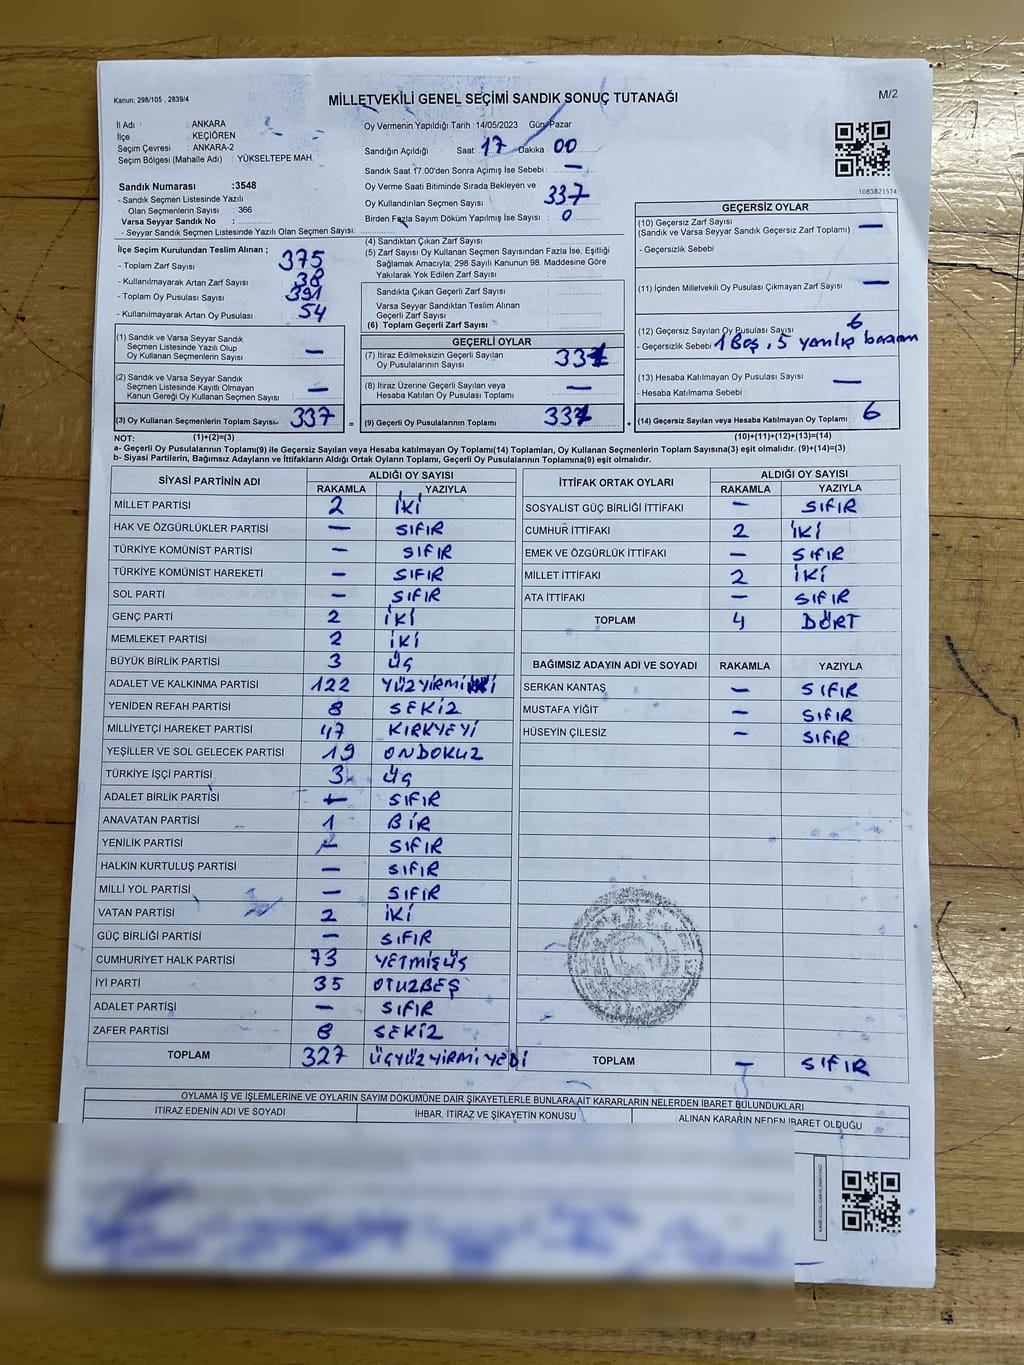 Kanun: 298/105 , 2839/4
MİLLETVEKİLİ GENEL SEÇİMİ SANDIK SONUÇ TUTANAĞI
M/2
İl Adı : ANKARA
İlçe : KEÇİÖREN
Seçim Çevresi : ANKARA-2
Seçim Bölgesi (Mahalle Adı) : YÜKSELTEPE MAH.
Sandık Numarası :3548
- Sandık Seçmen Listesinde Yazılı
Olan Seçmenlerin Sayısı : 366
Varsa Seyyar Sandık No :
- Seyyar Sandık Seçmen Listesinde Yazılı Olan Seçmen Sayısı:
Oy Vermenin Yapıldığı Tarih :14/05/2023 Gün:Pazar
Sandığın Açıldığı Saat 17 Dakika 00
Sandık Saat 17.00'den Sonra Açılmış İse Sebebi : —
Oy Verme Saati Bitiminde Sırada Bekleyen ve
Oy Kullandırılan Seçmen Sayısı 337
Birden Fazla Sayım Döküm Yapılmış İse Sayısı : 0
1083821574
İlçe Seçim Kurulundan Teslim Alınan ;
- Toplam Zarf Sayısı 375
- Kullanılmayarak Artan Zarf Sayısı 38
- Toplam Oy Pusulası Sayısı 391
- Kullanılmayarak Artan Oy Pusulası 54
(1) Sandık ve Varsa Seyyar Sandık
Seçmen Listesinde Yazılı Olup
Oy Kullanan Seçmenlerin Sayısı —
(2) Sandık ve Varsa Seyyar Sandık
Seçmen Listesinde Kayıtlı Olmayan
Kanun Gereği Oy Kullanan Seçmen Sayısı —
(3) Oy Kullanan Seçmenlerin Toplam Sayısı 337
(1)+(2)=(3)
(4) Sandıktan Çıkan Zarf Sayısı
(5) Zarf Sayısı Oy Kullanan Seçmen Sayısından Fazla İse, Eşitliği
Sağlamak Amacıyla; 298 Sayılı Kanunun 98. Maddesine Göre
Yakılarak Yok Edilen Zarf Sayısı
Sandıkta Çıkan Geçerli Zarf Sayısı
Varsa Seyyar Sandıktan Teslim Alınan
Geçerli Zarf Sayısı
(6) Toplam Geçerli Zarf Sayısı
GEÇERLİ OYLAR
(7) İtiraz Edilmeksizin Geçerli Sayılan
Oy Pusulalarının Sayısı 331
(8) İtiraz Üzerine Geçerli Sayılan veya
Hesaba Katılan Oy Pusulası Toplamı —
= (9) Geçerli Oy Pusulalarının Toplamı 331
GEÇERSİZ OYLAR
(10) Geçersiz Zarf Sayısı
(Sandık ve Varsa Seyyar Sandık Geçersiz Zarf Toplamı) —
- Geçersizlik Sebebi
(11) İçinden Milletvekili Oy Pusulası Çıkmayan Zarf Sayısı —
(12) Geçersiz Sayılan Oy Pusulası Sayısı 6
- Geçersizlik Sebebi 1 Boş, 5 yanlış basım
(13) Hesaba Katılmayan Oy Pusulası Sayısı —
- Hesaba Katılmama Sebebi
+ (14) Geçersiz Sayılan veya Hesaba Katılmayan Oy Toplamı 6
(10)+(11)+(12)+(13)=(14)
NOT:
a- Geçerli Oy Pusulalarının Toplamı(9) ile Geçersiz Sayılan veya Hesaba Katılmayan Oy Toplamı(14) Toplamları, Oy Kullanan Seçmenlerin Toplam Sayısına(3) eşit olmalıdır. (9)+(14)=(3)
b- Siyasi Partilerin, Bağımsız Adayların ve İttifakların Aldığı Ortak Oyların Toplamı, Geçerli Oy Pusulalarının Toplamına(9) eşit olmalıdır.
SİYASİ PARTİNİN ADI ALDIĞI OY SAYISI
RAKAMLA YAZIYLA
MİLLET PARTİSİ 2 İKİ
HAK VE ÖZGÜRLÜKLER PARTİSİ — SIFIR
TÜRKİYE KOMÜNİST PARTİSİ — SIFIR
TÜRKİYE KOMÜNİST HAREKETİ — SIFIR
SOL PARTİ — SIFIR
GENÇ PARTİ 2 İKİ
MEMLEKET PARTİSİ 2 İKİ
BÜYÜK BİRLİK PARTİSİ 3 ÜÇ
ADALET VE KALKINMA PARTİSİ 122 YÜZYİRMİ
YENİDEN REFAH PARTİSİ 8 SEKİZ
MİLLİYETÇİ HAREKET PARTİSİ 47 KIRKYEYİ
YEŞİLLER VE SOL GELECEK PARTİSİ 19 ONDOKUZ
TÜRKİYE İŞÇİ PARTİSİ 3 ÜÇ
ADALET BİRLİK PARTİSİ — SIFIR
ANAVATAN PARTİSİ 1 BİR
YENİLİK PARTİSİ — SIFIR
HALKIN KURTULUŞ PARTİSİ — SIFIR
MİLLİ YOL PARTİSİ — SIFIR
VATAN PARTİSİ 2 İKİ
GÜÇ BİRLİĞİ PARTİSİ — SIFIR
CUMHURİYET HALK PARTİSİ 73 YETMİŞÜÇ
İYİ PARTİ 35 OTUZBEŞ
ADALET PARTİSİ — SIFIR
ZAFER PARTİSİ 8 SEKİZ
TOPLAM 327 ÜÇYÜZYİRMİYEDİ
İTTİFAK ORTAK OYLARI ALDIĞI OY SAYISI
RAKAMLA YAZIYLA
SOSYALİST GÜÇ BİRLİĞİ İTTİFAKI — SIFIR
CUMHUR İTTİFAKI 2 İKİ
EMEK VE ÖZGÜRLÜK İTTİFAKI — SIFIR
MİLLET İTTİFAKI 2 İKİ
ATA İTTİFAKI — SIFIR
TOPLAM 4 DÖRT
BAĞIMSIZ ADAYIN ADI VE SOYADI RAKAMLA YAZIYLA
SERKAN KANTAŞ — SIFIR
MUSTAFA YİĞİT — SIFIR
HÜSEYİN ÇİLESİZ — SIFIR
TOPLAM — SIFIR
OYLAMA İŞ VE İŞLEMLERİNE VE OYLARIN SAYIM DÖKÜMÜNE DAİR ŞİKAYETLERLE BUNLARA AİT KARARLARIN NELERDEN İBARET BULUNDUKLARI
İTİRAZ EDENİN ADI VE SOYADI İHBAR, İTİRAZ VE ŞİKAYETİN KONUSU ALINAN KARARIN NEDEN İBARET OLDUĞU